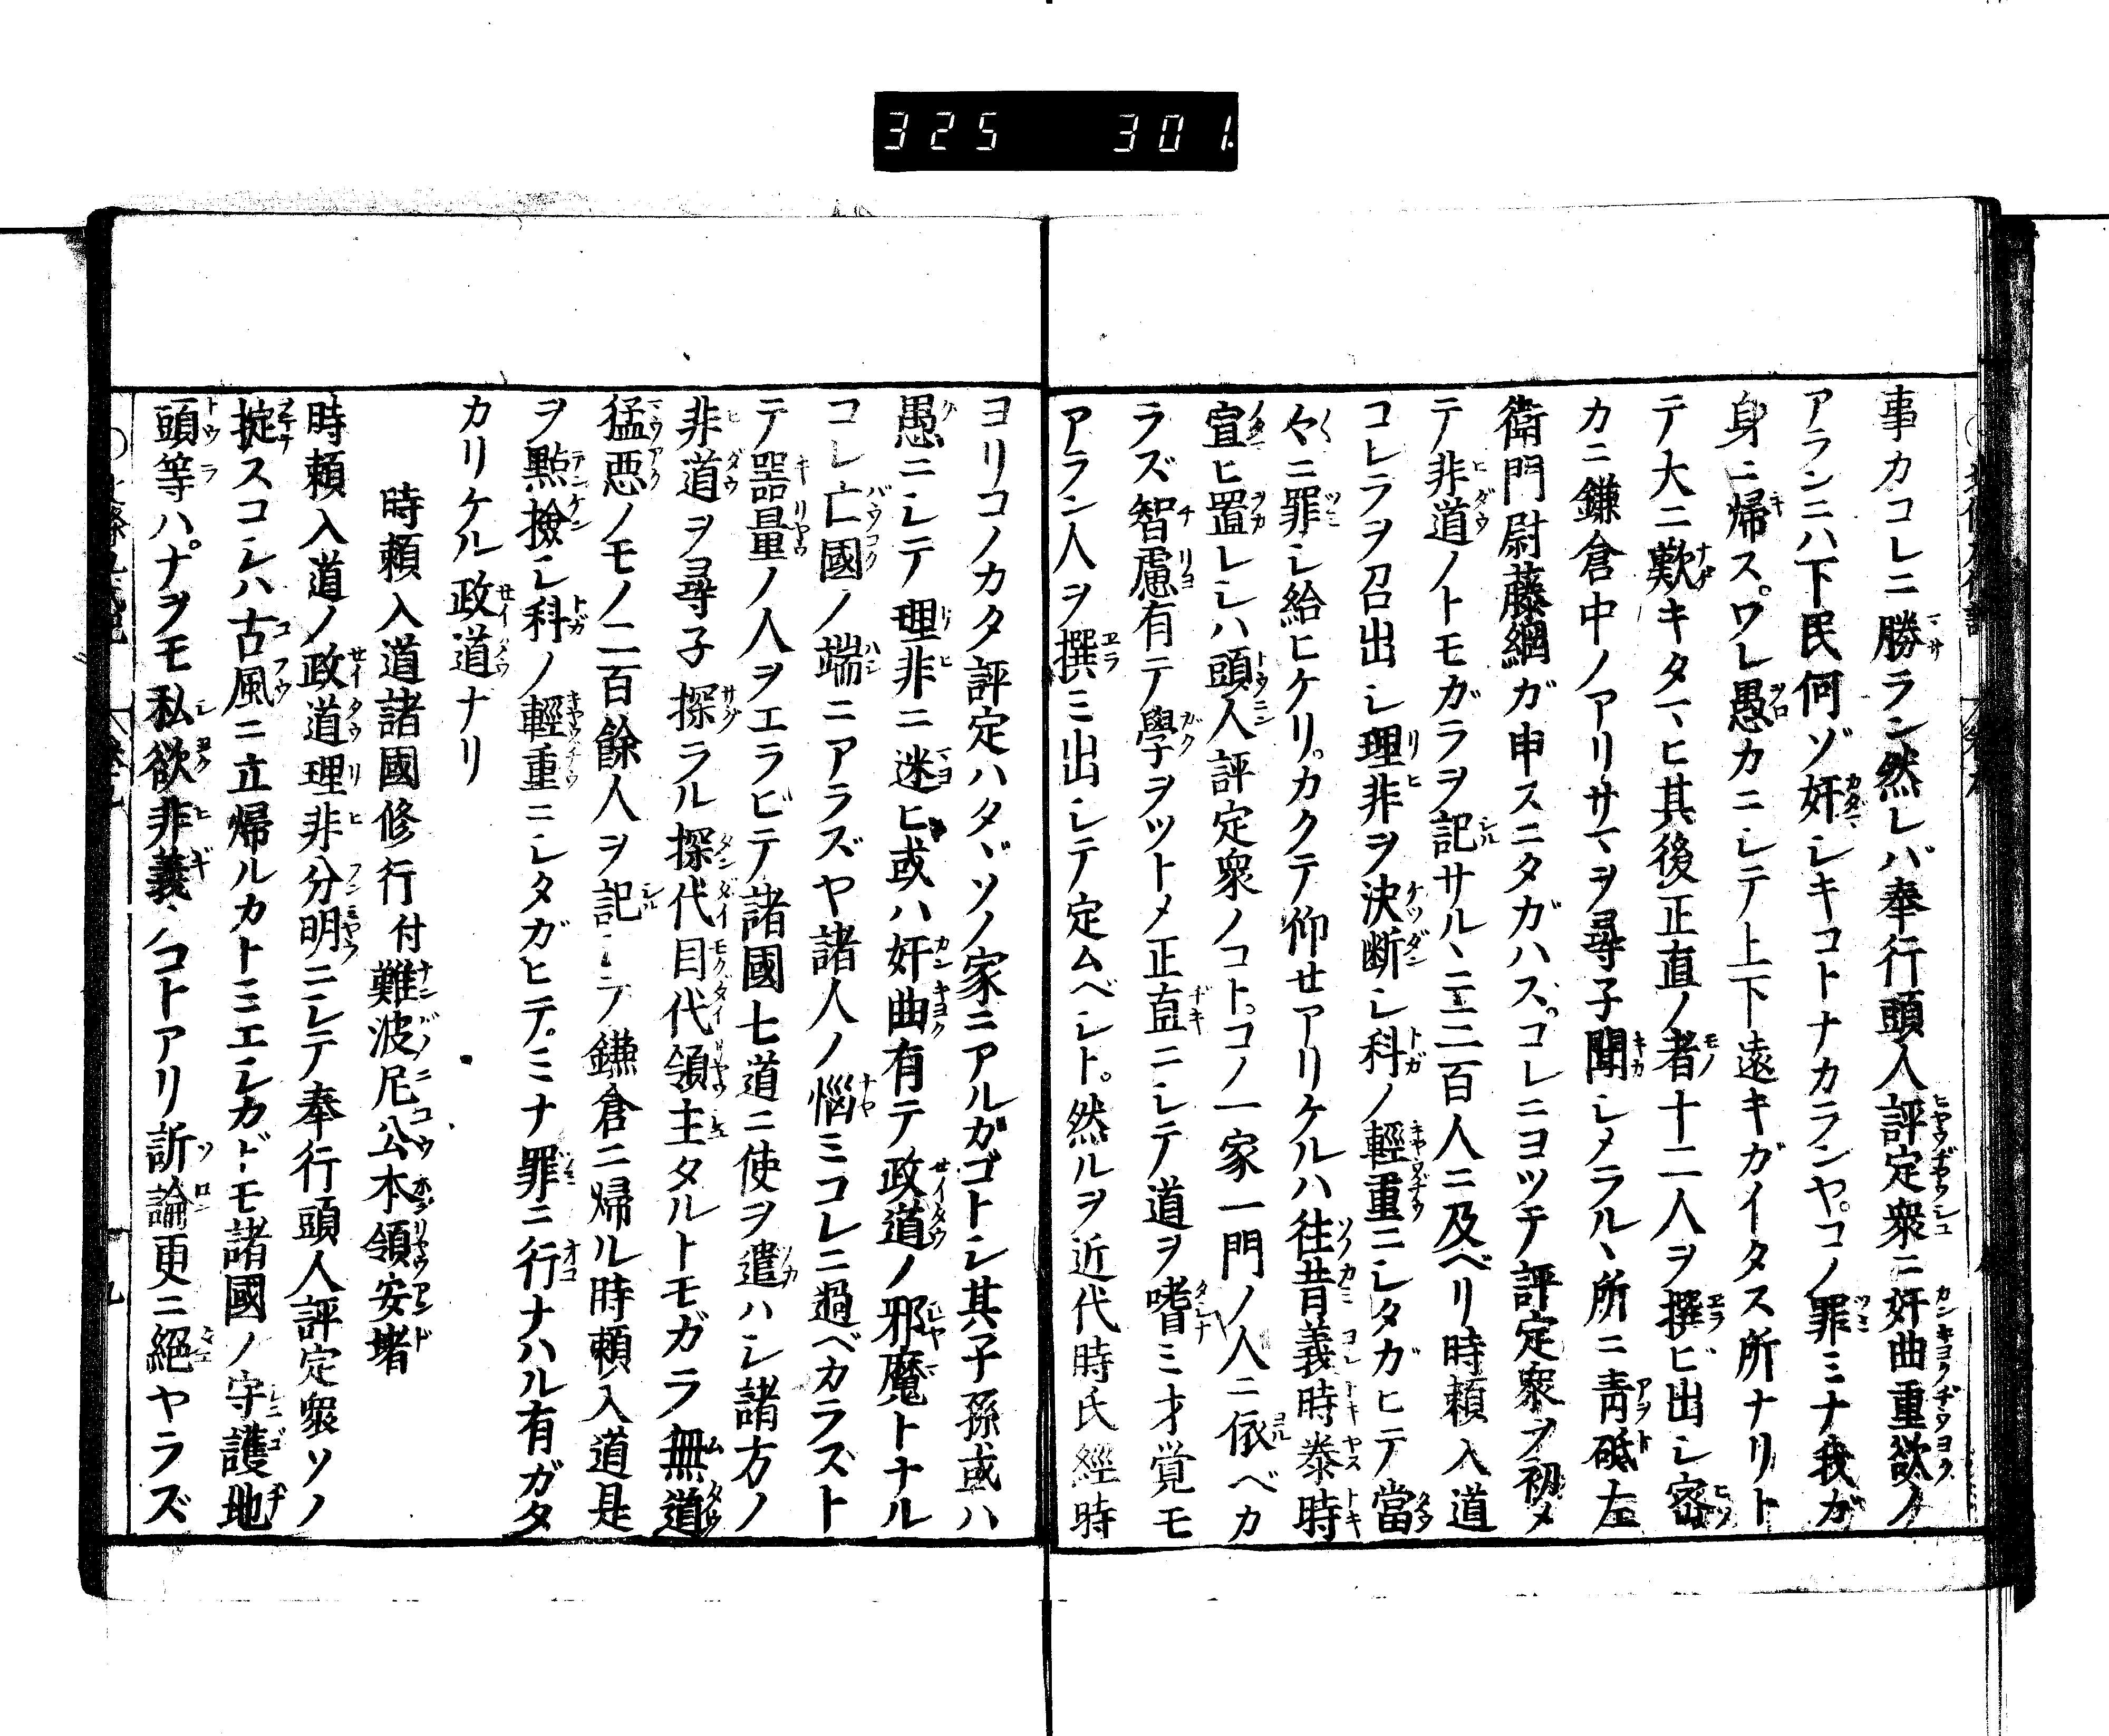 325 301.
事カコレニ勝ラン然レバ奉行頭人評定衆ニ奸曲重欲ノ
アランニハ下民何ゾ奸シキコトナカランヤ。コノ罪ミナ我ガ
身ニ帰ス。ワレ愚カニシテ上下遠キガイタス所ナリト
テ大ニ歎キタマヒ其後正直ノ者十二人ヲ撰ビ出シ密
カニ鎌倉中ノアリサマヲ尋子聞シメラルヽ所ニ青砥左
衛門尉藤綱ガ申スニタガハズ。コレニヨツテ評定衆ヲ初メ
テ非道ノトモガラヲ記サルヽニ三百人ニ及ベリ時頼入道
コレラヲ召出シ理非ヲ決断シ科ノ輕重ニシタガヒテ當
々ニ罪シ給ヒケリ。カクテ仰セアリケルハ往昔義時泰時
宣ヒ置レシハ頭人評定衆ノコト。コノ一家一門ノ人ニ依ベカ
ラズ智慮有テ學ヲツトメ正直ニシテ道ヲ嗜ミ才覚モ
アラン人ヲ撰ミ出シテ定ムベシト。然ルヲ近代時氏經時
ヨリコノカタ評定ハタヾソノ家ニアルガゴトシ其子孫或ハ
愚ニシテ理非ニ迷ヒ或ハ奸曲有テ政道ノ邪魔トナル
コレ亡國ノ端ニアラズヤ諸人ノ悩ミコレニ過ベカラズト
テ噐量ノ人ヲエラビテ諸國七道ニ使ヲ遣ハシ諸方ノ
非道ヲ尋子探ラル探代目代領主タルトモガラ無道
猛悪ノモノ二百餘人ヲ記シテ鎌倉ニ帰ル時頼入道是
ヲ點撿シ科ノ輕重ニシタガヒテ。ミナ罪ニ行ナハル有ガタ
カリケル政道ナリ
時頼入道諸國修行付難波尼公本領安堵
時頼入道ノ政道理非分明ニシテ奉行頭人評定衆ソノ
掟スコシハ古風ニ立帰ルカトミエシカドモ諸國ノ守護地
頭等ハ。ナヲモ私欲非義ノコトアリ訴論更ニ絕ヤラズ